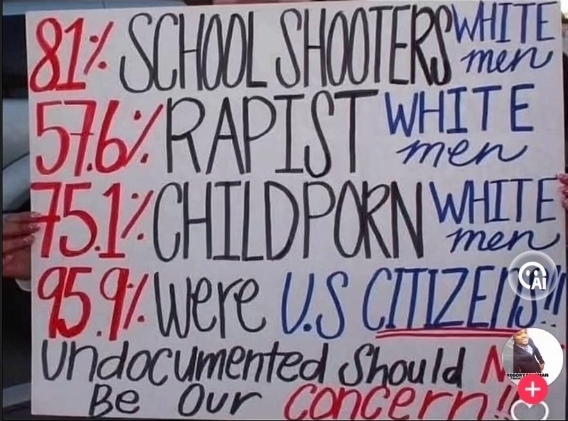 81% SCHOOL SHOOTERS WHITE men
57.6% RAPIST WHITE men
75.1% CHILDPORN WHITE men
95.9% Were U.S CITIZENS!!
Undocumented Should
Be Our Concern!!
AI